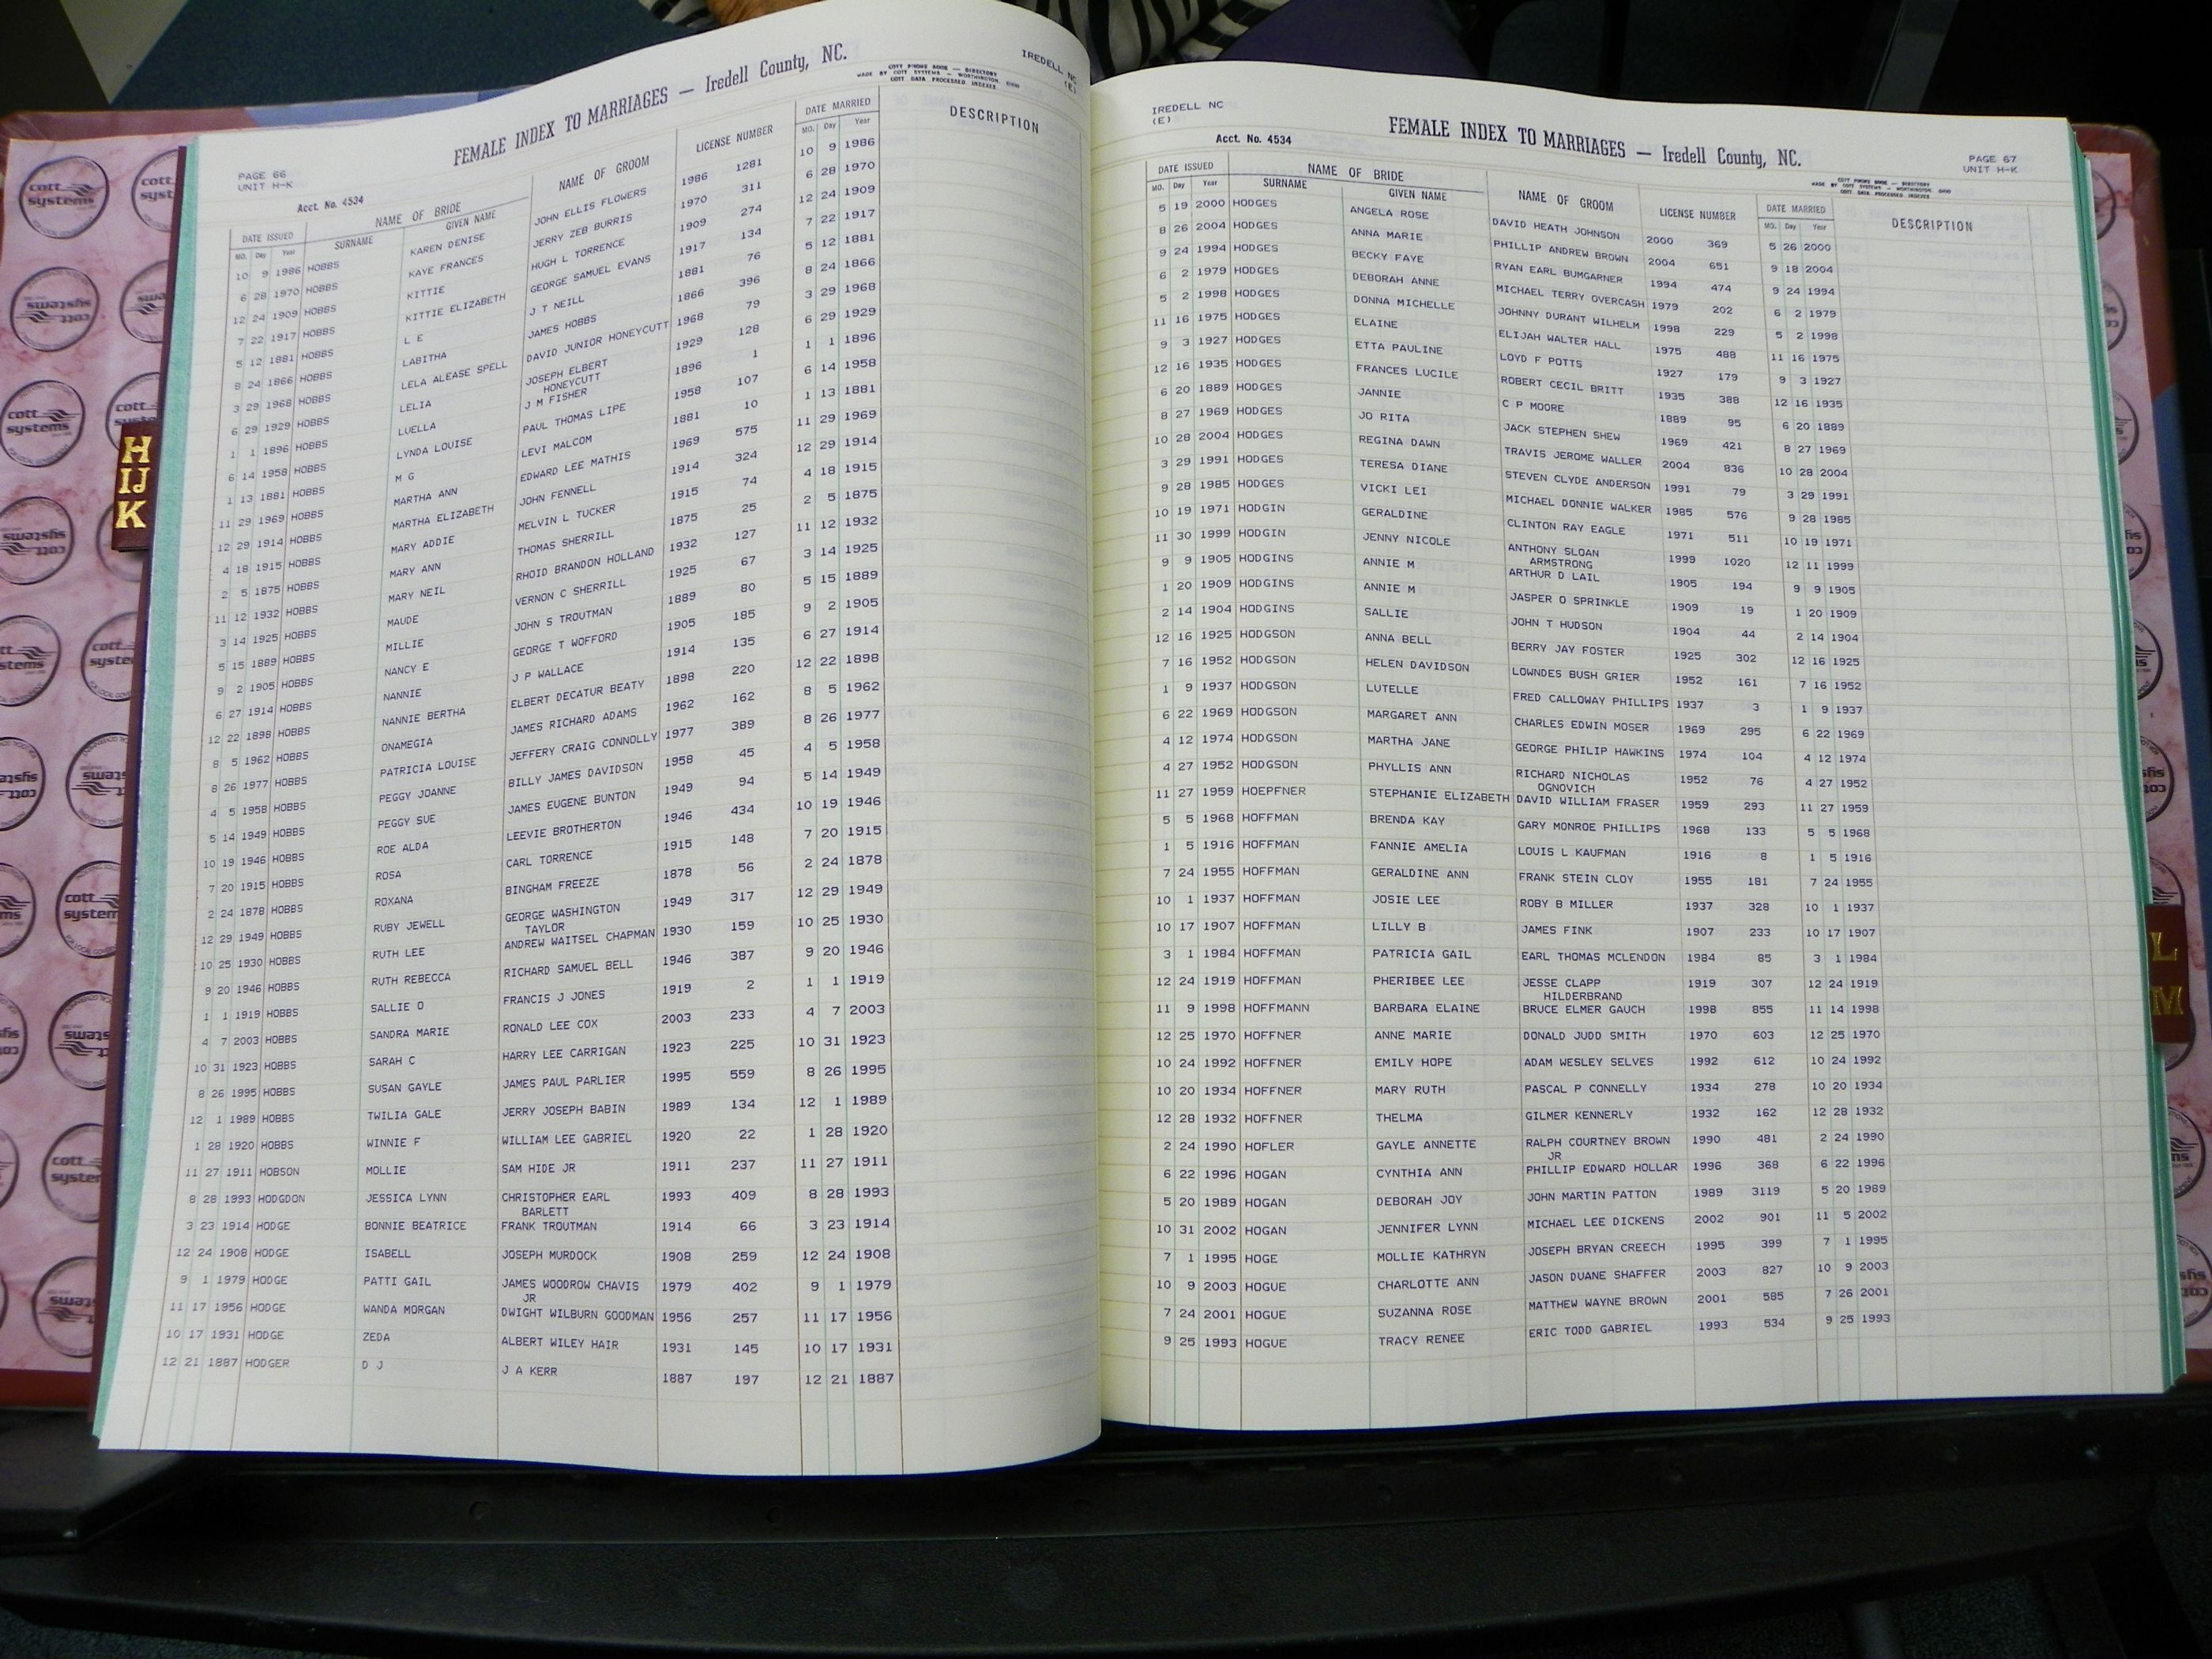 PAGE 66
UNIT H-K
FEMALE INDEX TO MARRIAGES — Iredell County, NC.
COTT PHONE BOOK — DIRECTORY
MADE BY COTT SYSTEMS — WORTHINGTON, OHIO
COTT DATA PROCESSED INDEXES
IREDELL NC
(E)
Acct. No. 4534
DATE ISSUED NAME OF BRIDE NAME OF GROOM LICENSE NUMBER DATE MARRIED DESCRIPTION
MO. Day Year SURNAME GIVEN NAME MO. Day Year
10 9 1986 HOBBS KAREN DENISE JOHN ELLIS FLOWERS 1986 1281 10 9 1986
6 28 1970 HOBBS KAYE FRANCES JERRY ZEB BURRIS 1970 311 6 28 1970
12 24 1909 HOBBS KITTIE HUGH L TORRENCE 1909 274 12 24 1909
7 22 1917 HOBBS KITTIE ELIZABETH GEORGE SAMUEL EVANS 1917 134 7 22 1917
5 12 1881 HOBBS L E J T NEILL 1881 76 5 12 1881
8 24 1866 HOBBS LABITHA JAMES HOBBS 1866 396 8 24 1866
3 29 1968 HOBBS LELA ALEASE SPELL DAVID JUNIOR HONEYCUTT 1968 79 3 29 1968
6 29 1929 HOBBS LELIA JOSEPH ELBERT 1929 128 6 29 1929
HONEYCUTT
1 1 1896 HOBBS LUELLA J M FISHER 1896 1 1 1 1896
6 14 1958 HOBBS LYNDA LOUISE PAUL THOMAS LIPE 1958 107 6 14 1958
1 13 1881 HOBBS M G LEVI MALCOM 1881 10 1 13 1881
11 29 1969 HOBBS MARTHA ANN EDWARD LEE MATHIS 1969 575 11 29 1969
12 29 1914 HOBBS MARTHA ELIZABETH JOHN FENNELL 1914 324 12 29 1914
4 18 1915 HOBBS MARY ADDIE MELVIN L TUCKER 1915 74 4 18 1915
2 5 1875 HOBBS MARY ANN THOMAS SHERRILL 1875 25 2 5 1875
11 12 1932 HOBBS MARY NEIL RHOID BRANDON HOLLAND 1932 127 11 12 1932
3 14 1925 HOBBS MAUDE VERNON C SHERRILL 1925 67 3 14 1925
5 15 1889 HOBBS MILLIE JOHN S TROUTMAN 1889 80 5 15 1889
9 2 1905 HOBBS NANCY E GEORGE T WOFFORD 1905 185 9 2 1905
6 27 1914 HOBBS NANNIE J P WALLACE 1914 135 6 27 1914
12 22 1898 HOBBS NANNIE BERTHA ELBERT DECATUR BEATY 1898 220 12 22 1898
8 5 1962 HOBBS ONAMEGIA JAMES RICHARD ADAMS 1962 162 8 5 1962
8 26 1977 HOBBS PATRICIA LOUISE JEFFERY CRAIG CONNOLLY 1977 389 8 26 1977
4 5 1958 HOBBS PEGGY JOANNE BILLY JAMES DAVIDSON 1958 45 4 5 1958
5 14 1949 HOBBS PEGGY SUE JAMES EUGENE BUNTON 1949 94 5 14 1949
10 19 1946 HOBBS ROE ALDA LEEVIE BROTHERTON 1946 434 10 19 1946
7 20 1915 HOBBS ROSA CARL TORRENCE 1915 148 7 20 1915
2 24 1878 HOBBS ROXANA BINGHAM FREEZE 1878 56 2 24 1878
12 29 1949 HOBBS RUBY JEWELL GEORGE WASHINGTON 1949 317 12 29 1949
TAYLOR
10 25 1930 HOBBS RUTH LEE ANDREW WAITSEL CHAPMAN 1930 159 10 25 1930
9 20 1946 HOBBS RUTH REBECCA RICHARD SAMUEL BELL 1946 387 9 20 1946
1 1 1919 HOBBS SALLIE O FRANCIS J JONES 1919 2 1 1 1919
4 7 2003 HOBBS SANDRA MARIE RONALD LEE COX 2003 233 4 7 2003
10 31 1923 HOBBS SARAH C HARRY LEE CARRIGAN 1923 225 10 31 1923
8 26 1995 HOBBS SUSAN GAYLE JAMES PAUL PARLIER 1995 559 8 26 1995
12 1 1989 HOBBS TWILIA GALE JERRY JOSEPH BABIN 1989 134 12 1 1989
1 28 1920 HOBBS WINNIE F WILLIAM LEE GABRIEL 1920 22 1 28 1920
11 27 1911 HOBSON MOLLIE SAM HIDE JR 1911 237 11 27 1911
8 28 1993 HODGDON JESSICA LYNN CHRISTOPHER EARL 1993 409 8 28 1993
BARLETT
3 23 1914 HODGE BONNIE BEATRICE FRANK TROUTMAN 1914 66 3 23 1914
12 24 1908 HODGE ISABELL JOSEPH MURDOCK 1908 259 12 24 1908
9 1 1979 HODGE PATTI GAIL JAMES WOODROW CHAVIS 1979 402 9 1 1979
JR
11 17 1956 HODGE WANDA MORGAN DWIGHT WILBURN GOODMAN 1956 257 11 17 1956
10 17 1931 HODGE ZEDA ALBERT WILEY HAIR 1931 145 10 17 1931
12 21 1887 HODGER D J J A KERR 1887 197 12 21 1887
IREDELL NC
(E)
Acct. No. 4534
FEMALE INDEX TO MARRIAGES — Iredell County, NC.
PAGE 67
UNIT H-K
COTT PHONE BOOK — DIRECTORY
MADE BY COTT SYSTEMS — WORTHINGTON, OHIO
COTT DATA PROCESSED INDEXES
DATE ISSUED NAME OF BRIDE NAME OF GROOM LICENSE NUMBER DATE MARRIED DESCRIPTION
MO. Day Year SURNAME GIVEN NAME MO. Day Year
5 19 2000 HODGES ANGELA ROSE DAVID HEATH JOHNSON 2000 369 5 26 2000
8 26 2004 HODGES ANNA MARIE PHILLIP ANDREW BROWN 2004 651 9 18 2004
9 24 1994 HODGES BECKY FAYE RYAN EARL BUMGARNER 1994 474 9 24 1994
6 2 1979 HODGES DEBORAH ANNE MICHAEL TERRY OVERCASH 1979 202 6 2 1979
5 2 1998 HODGES DONNA MICHELLE JOHNNY DURANT WILHELM 1998 229 5 2 1998
11 16 1975 HODGES ELAINE ELIJAH WALTER HALL 1975 488 11 16 1975
9 3 1927 HODGES ETTA PAULINE LOYD F POTTS 1927 179 9 3 1927
12 16 1935 HODGES FRANCES LUCILE ROBERT CECIL BRITT 1935 388 12 16 1935
6 20 1889 HODGES JANNIE C P MOORE 1889 95 6 20 1889
8 27 1969 HODGES JO RITA JACK STEPHEN SHEW 1969 421 8 27 1969
10 28 2004 HODGES REGINA DAWN TRAVIS JEROME WALLER 2004 836 10 28 2004
3 29 1991 HODGES TERESA DIANE STEVEN CLYDE ANDERSON 1991 79 3 29 1991
9 28 1985 HODGES VICKI LEI MICHAEL DONNIE WALKER 1985 576 9 28 1985
10 19 1971 HODGIN GERALDINE CLINTON RAY EAGLE 1971 511 10 19 1971
11 30 1999 HODGIN JENNY NICOLE ANTHONY SLOAN 1999 1020 12 11 1999
ARMSTRONG
9 9 1905 HODGINS ANNIE M ARTHUR D LAIL 1905 194 9 9 1905
1 20 1909 HODGINS ANNIE M JASPER O SPRINKLE 1909 19 1 20 1909
2 14 1904 HODGINS SALLIE JOHN T HUDSON 1904 44 2 14 1904
12 16 1925 HODGSON ANNA BELL BERRY JAY FOSTER 1925 302 12 16 1925
7 16 1952 HODGSON HELEN DAVIDSON LOWNDES BUSH GRIER 1952 161 7 16 1952
1 9 1937 HODGSON LUTELLE FRED CALLOWAY PHILLIPS 1937 3 1 9 1937
6 22 1969 HODGSON MARGARET ANN CHARLES EDWIN MOSER 1969 295 6 22 1969
4 12 1974 HODGSON MARTHA JANE GEORGE PHILIP HAWKINS 1974 104 4 12 1974
4 27 1952 HODGSON PHYLLIS ANN RICHARD NICHOLAS 1952 76 4 27 1952
OGNOVICH
11 27 1959 HOEPFNER STEPHANIE ELIZABETH DAVID WILLIAM FRASER 1959 293 11 27 1959
5 5 1968 HOFFMAN BRENDA KAY GARY MONROE PHILLIPS 1968 133 5 5 1968
1 5 1916 HOFFMAN FANNIE AMELIA LOUIS L KAUFMAN 1916 8 1 5 1916
7 24 1955 HOFFMAN GERALDINE ANN FRANK STEIN CLOY 1955 181 7 24 1955
10 1 1937 HOFFMAN JOSIE LEE ROBY B MILLER 1937 328 10 1 1937
10 17 1907 HOFFMAN LILLY B JAMES FINK 1907 233 10 17 1907
3 1 1984 HOFFMAN PATRICIA GAIL EARL THOMAS MCLENDON 1984 85 3 1 1984
12 24 1919 HOFFMAN PHERIBEE LEE JESSE CLAPP 1919 307 12 24 1919
HILDERBRAND
11 9 1998 HOFFMANN BARBARA ELAINE BRUCE ELMER GAUCH 1998 855 11 14 1998
12 25 1970 HOFFNER ANNE MARIE DONALD JUDD SMITH 1970 603 12 25 1970
10 24 1992 HOFFNER EMILY HOPE ADAM WESLEY SELVES 1992 612 10 24 1992
10 20 1934 HOFFNER MARY RUTH PASCAL P CONNELLY 1934 278 10 20 1934
12 28 1932 HOFFNER THELMA GILMER KENNERLY 1932 162 12 28 1932
2 24 1990 HOFLER GAYLE ANNETTE RALPH COURTNEY BROWN 1990 481 2 24 1990
JR
6 22 1996 HOGAN CYNTHIA ANN PHILLIP EDWARD HOLLAR 1996 368 6 22 1996
5 20 1989 HOGAN DEBORAH JOY JOHN MARTIN PATTON 1989 3119 5 20 1989
10 31 2002 HOGAN JENNIFER LYNN MICHAEL LEE DICKENS 2002 901 11 5 2002
7 1 1995 HOGE MOLLIE KATHRYN JOSEPH BRYAN CREECH 1995 399 7 1 1995
10 9 2003 HOGUE CHARLOTTE ANN JASON DUANE SHAFFER 2003 827 10 9 2003
7 24 2001 HOGUE SUZANNA ROSE MATTHEW WAYNE BROWN 2001 585 7 26 2001
9 25 1993 HOGUE TRACY RENEE ERIC TODD GABRIEL 1993 534 9 25 1993
H
IJ
K
L
M
cott
systems